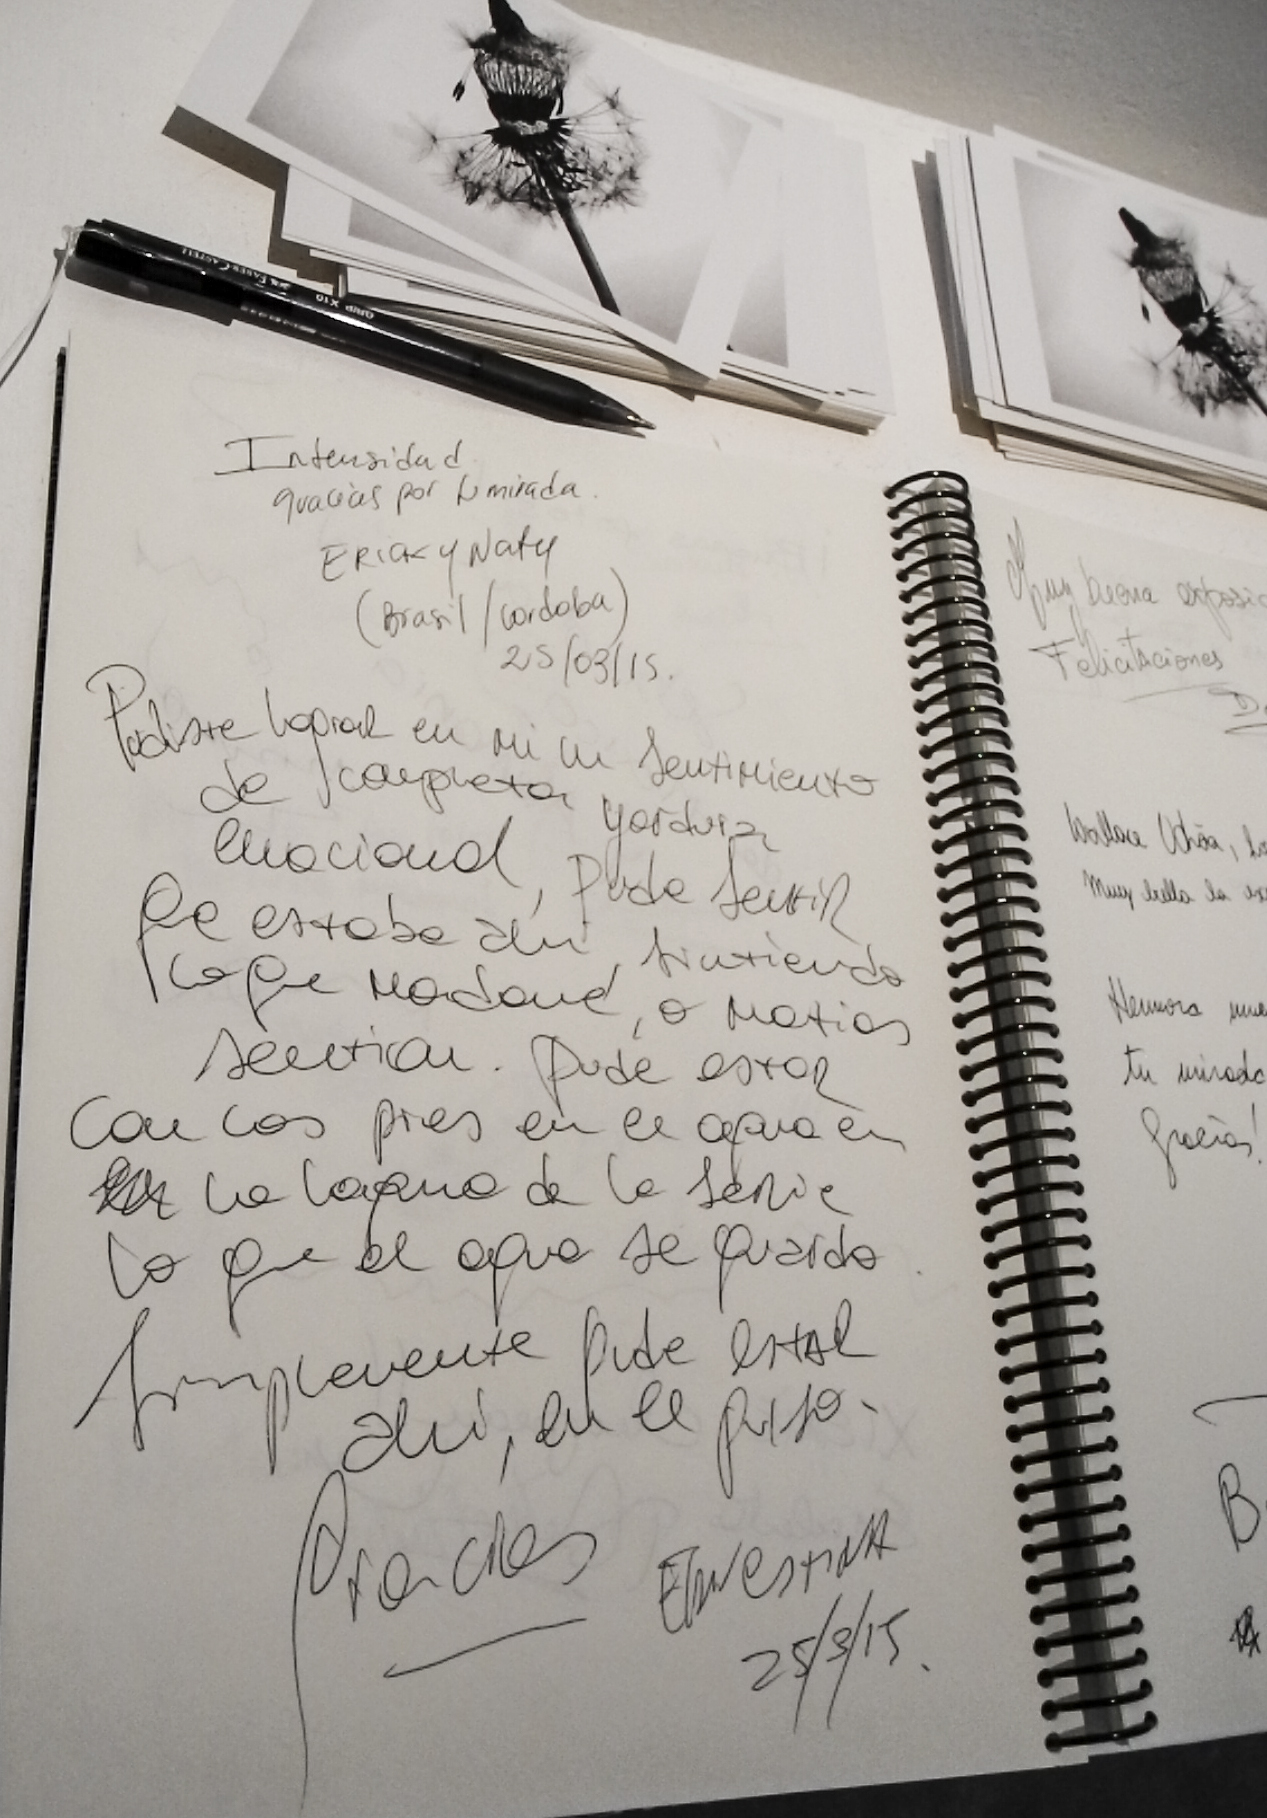 FABER-CASTELL
GRIP X10
Intensidad
gracias por tu mirada.
Erick y Naty
(Brasil/Cordoba)
25/03/15.
Pudiste lograr en mi un sentimiento
de completa
emocional, pude sentir
que estaba ahí, sintiendo
lo que Madame, o Matias
sentian. Pude estar
con los pies en el agua en
la laguna de la serie
lo que el agua se
Simplemente pude estar
ahí, en el piso.
Gracias
Ernestina
25/3/15.
Muy buena exposic
Felicitaciones
Wallace Ochoa,
Muy bella la
Hermosa
tu mirada
Gracias!
B